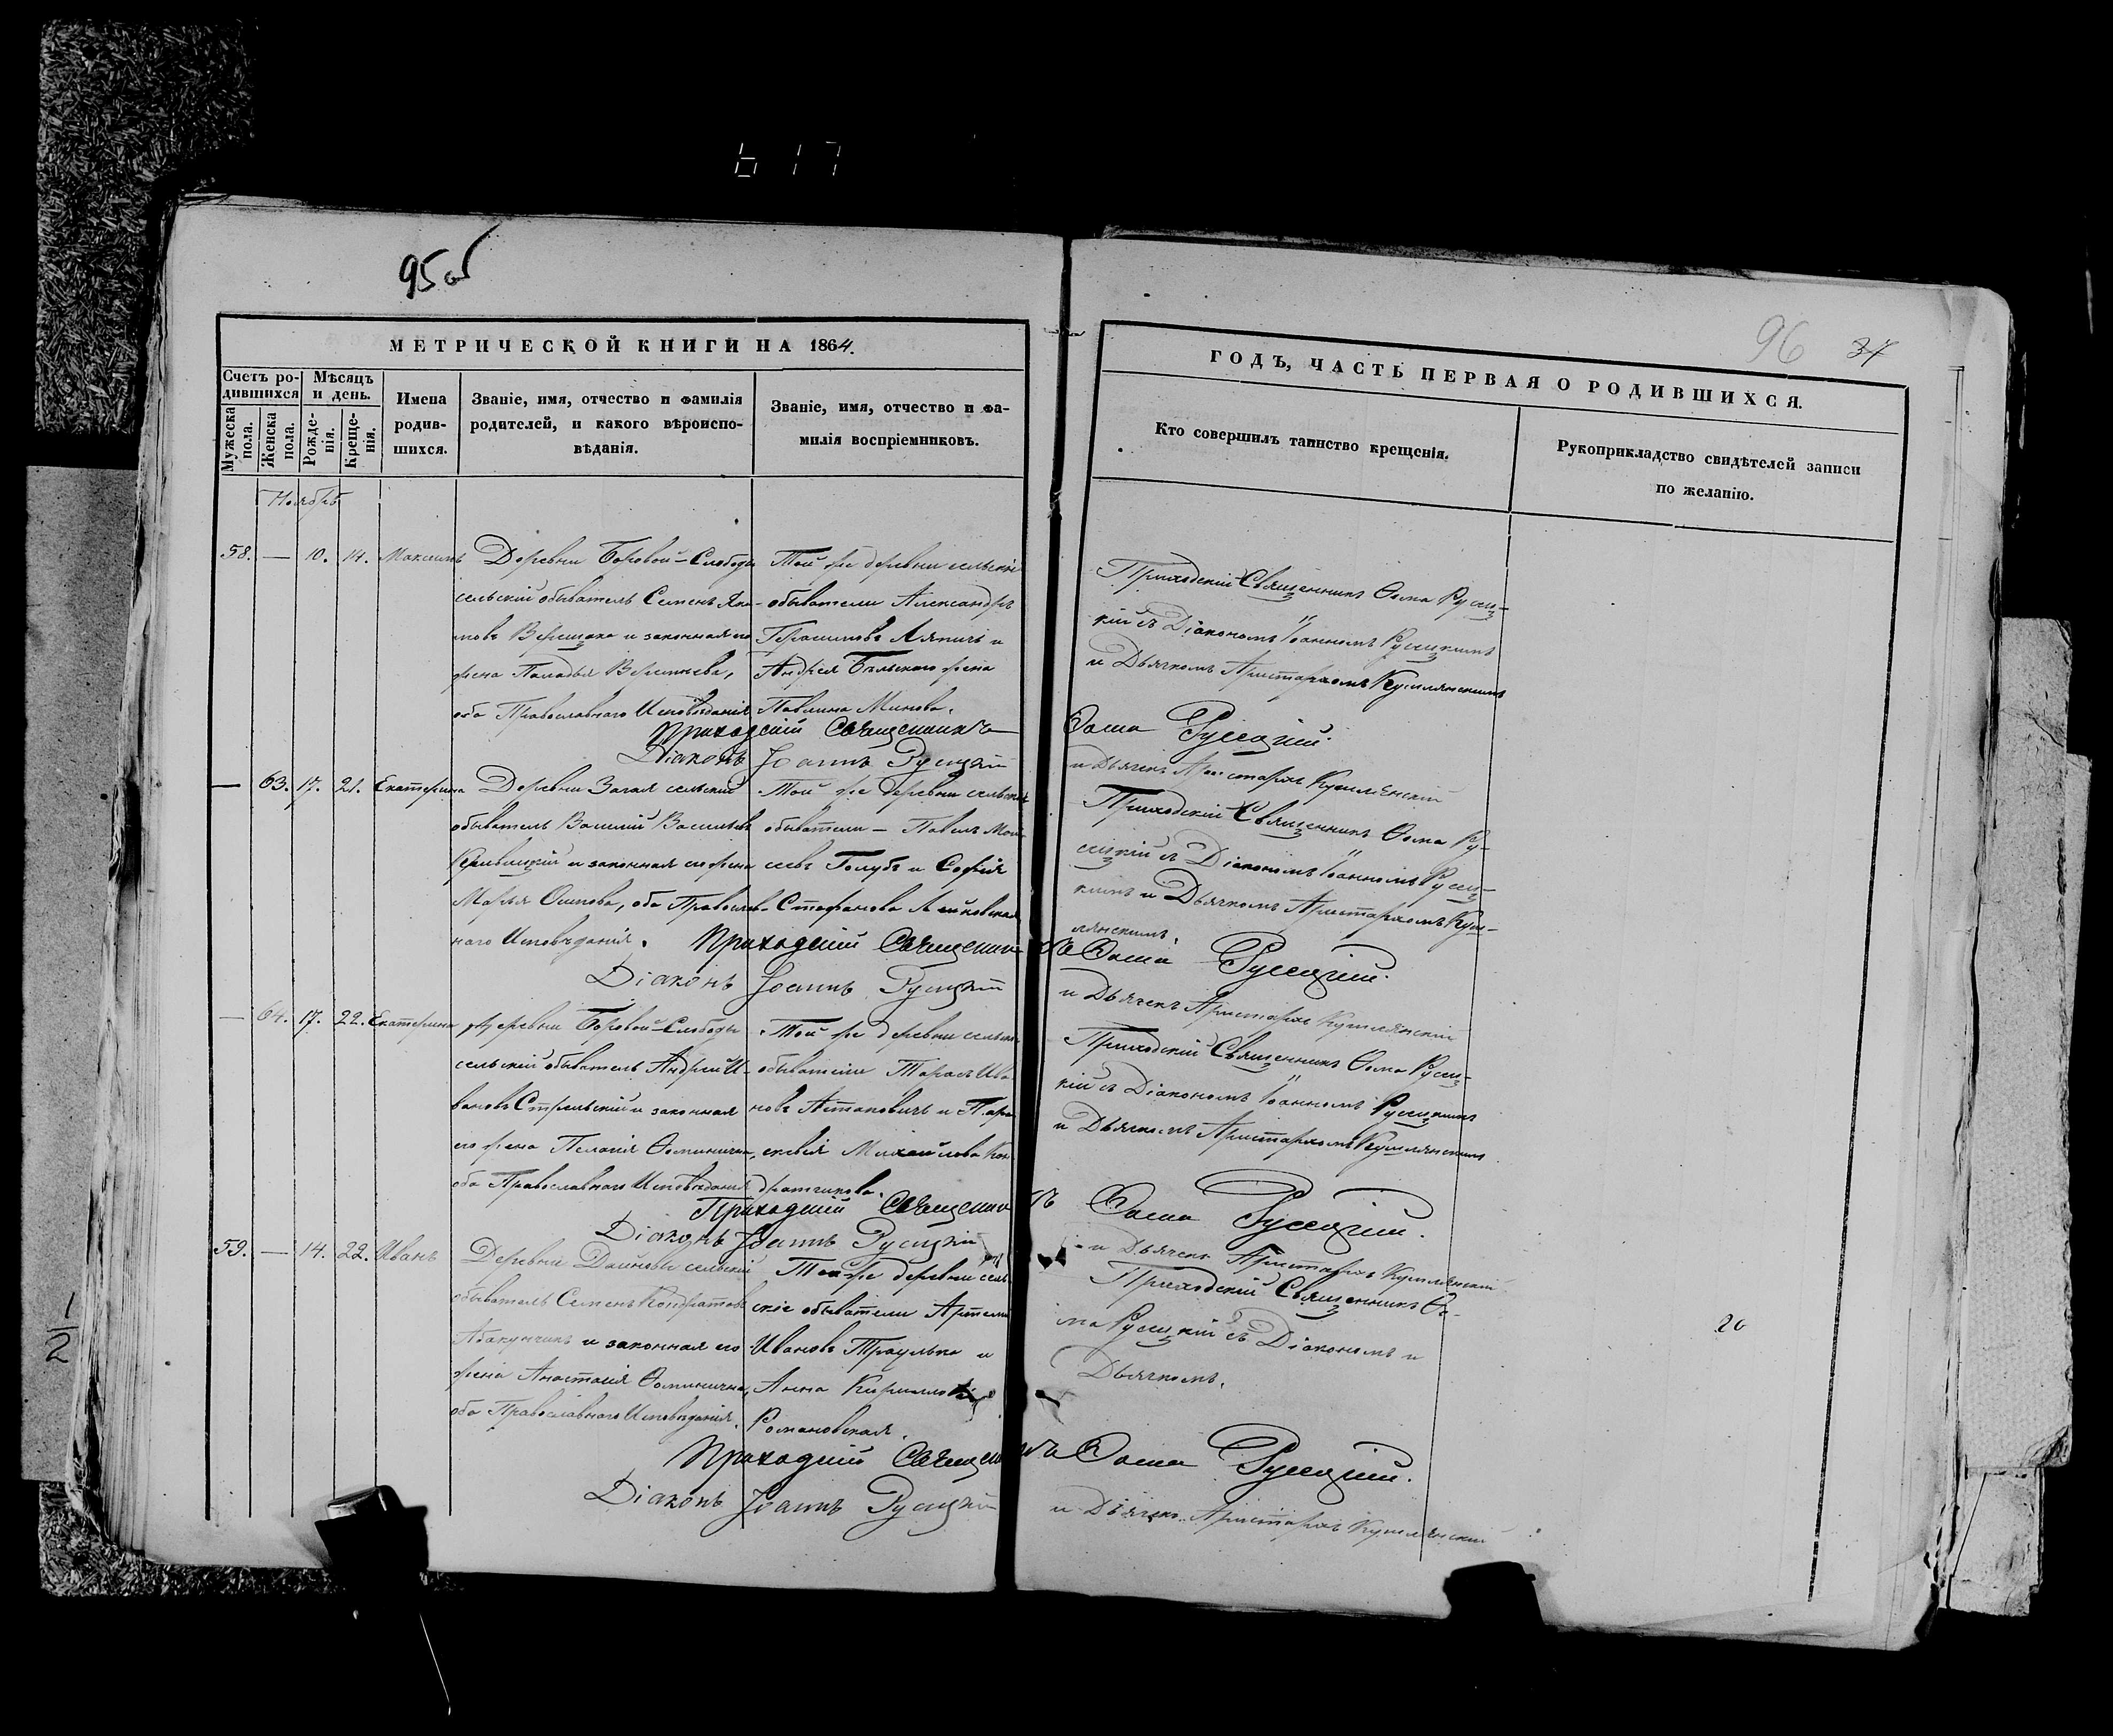 617
95 об
96 37
МЕТРИЧЕСКОЙ КНИГИ НА 1864.
ГОДЪ, ЧАСТЬ ПЕРВАЯ О РОДИВШИХСЯ.
Счетъ ро-
дившихся
Мужеска пола.
Женска пола.
Мѣсяцъ
и день.
Рожде-
нія.
Креще-
нія.
Имена
родив-
шихся.
Званіе, имя, отчество и фамилія
родителей, и какого вѣроиспо-
вѣданія.
Званіе, имя, отчество и фа-
милія воспріемниковъ.
Кто совершилъ таинство крещенія.
Рукоприкладство свидѣтелей записи
по желанію.
Ноябрь
58. — 10. 14. Максимъ
Деревни Боровой-Слободы
сельскій обыватель Семенъ Яки-
мовъ Верещака и законная его
жена Паладья
оба Православнаго Исповѣданія
Той же деревни сельскіе
обыватели Александръ
Герасимовъ Ляпичъ и
Андрея Бѣльскаго жена
Павлина Минова.
Приходскій Священникъ Ѳома Русец-
кій съ Діакономъ Іоанномъ Русецкимъ
и Дьячкомъ Аристархомъ Кушлянскимъ
Приходскій Священникъ Ѳома Русецкій.
Діаконъ Іоаннъ Русецкій
и Дьячекъ Аристархъ Кушлянскій
— 63. 17. 21. Екатерина
Деревни Загая сельскій
обыватель Василій Васильевъ
и законная его жена
Марья Осипова, оба Православ-
наго Исповѣданія.
Той же деревни сельскіе
обыватели — Павелъ Мои-
сеевъ Голубъ и Софія
Стефанова
Приходскій Священникъ Ѳома Ру-
сецкій съ Діакономъ Іоанномъ Русец-
кимъ и Дьячкомъ Аристархомъ Куш-
лянскимъ.
Приходскій Священникъ Ѳома Русецкій.
Діаконъ Іоаннъ Русецкій
и Дьячекъ Аристархъ Кушлянскій
— 64. 17. 22. Екатерина
Деревни Боровой-Слободы
сельскій обыватель Андрей И-
вановъ Стрельскій и законная
его жена Пелагія Ѳоминична,
оба Православнаго Исповѣданія
Той же деревни сельскіе
обыватели Тарасъ Ива-
новъ Астаповичъ и Пара-
скевія Михайлова Кон-
дратчикова.
Приходскій Священникъ Ѳома Русец-
кій съ Діакономъ Іоанномъ Русецкимъ
и Дьячкомъ Аристархомъ Кушлянскимъ
Приходскій Священникъ Ѳома Русецкій.
Діаконъ Іоаннъ Русецкій
и Дьячекъ Аристархъ Кушлянскій
59. — 14. 22. Иванъ
Деревни Дайновы сельскій
обыватель Семенъ Кондратовъ
Абакунчикъ и законная его
жена Анастасія Ѳоминична,
оба Православнаго Исповѣданія.
Той же деревни сель-
скіе обыватели Артемій
Ивановъ Траулько и
Анна Кириллова
Романовская.
Приходскій Священникъ Ѳо-
ма Русецкій съ Діакономъ и
Дьячкомъ.
Приходскій Священникъ Ѳома Русецкій.
Діаконъ Іоаннъ Русецкій
и Дьячекъ Аристархъ Кушлянскій
1/2